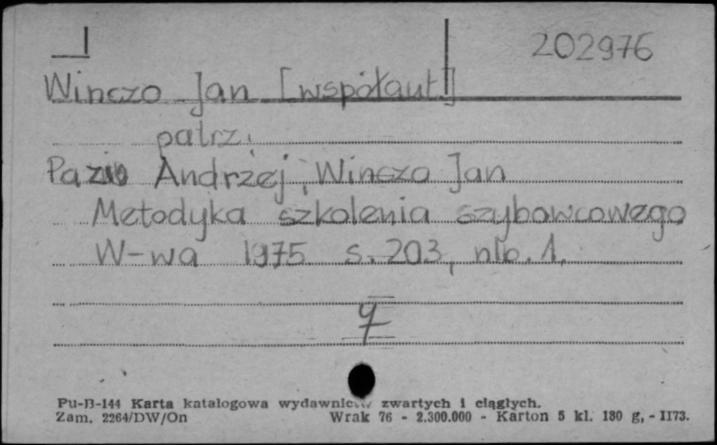 202976
Winczo Jan [współaut.]
patrz.
Pazio Andrzej, Winczo Jan
Metodyka szkolenia szybowcowego
W-wa 1975 s. 203, nlb. 1.
Pu-B-144 Karta katalogowa wydawnictw zwartych i ciągłych.
Zam. 2264/DW/On Wrak 76 - 2.300.000 - Karton 5 kl. 180 g, - II73.